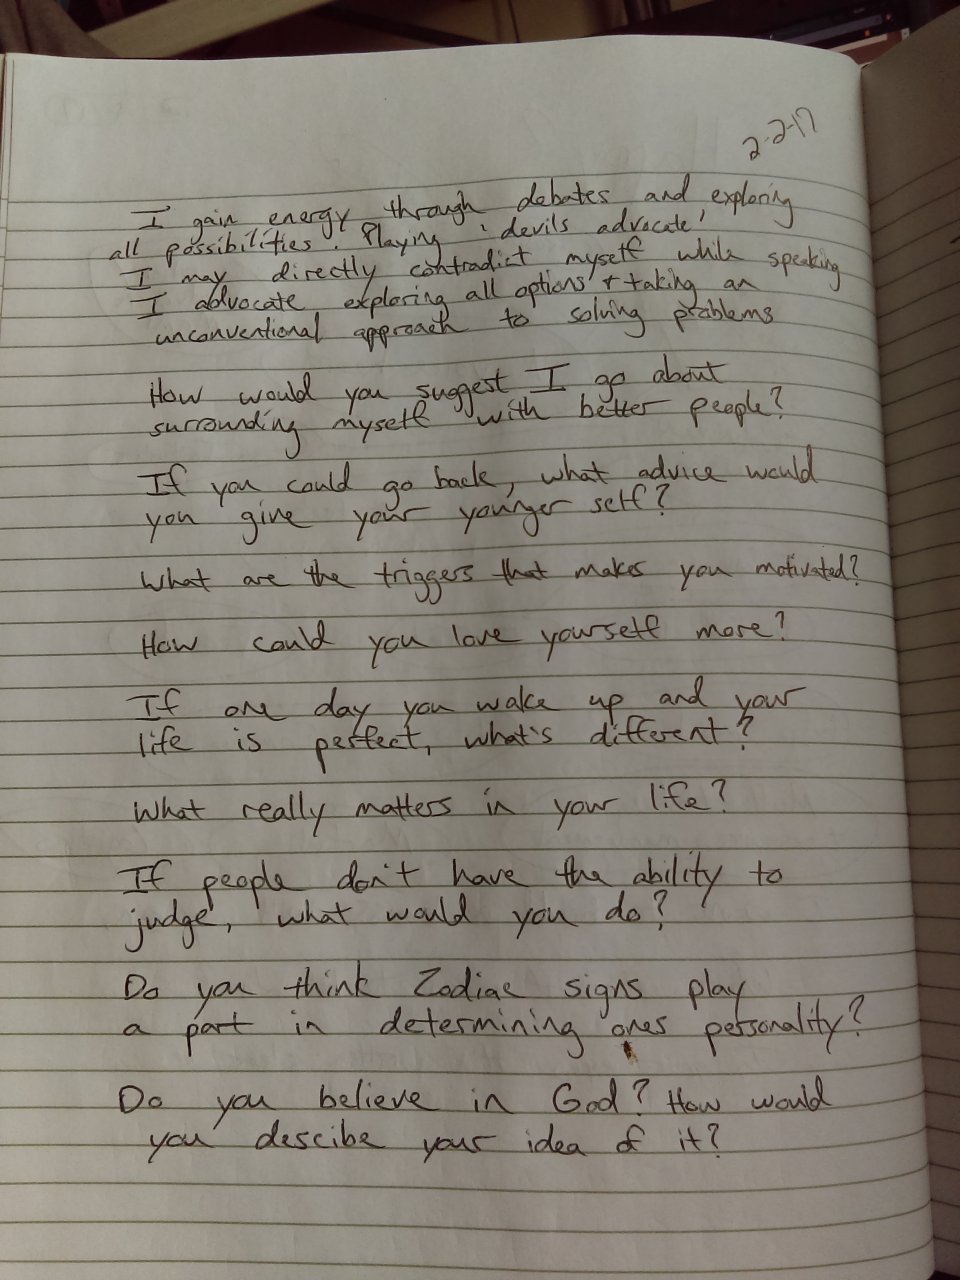 2-2-17
I gain energy through debates and exploring
all possibilities. Playing 'devils advocate'
I may directly contradict myself while speaking
I advocate exploring all options + taking an
unconventional approach to solving problems
How would you suggest I go about
surrounding myself with better people?
If you could go back, what advice would
you give your younger self?
What are the triggers that makes you motivated?
How could you love yourself more?
If one day you wake up and your
life is perfect, what's different?
What really matters in your life?
If people don't have the ability to
judge, what would you do?
Do you think Zodiac signs play
a part in determining ones personality?
Do you believe in God? How would
you descibe your idea of it?